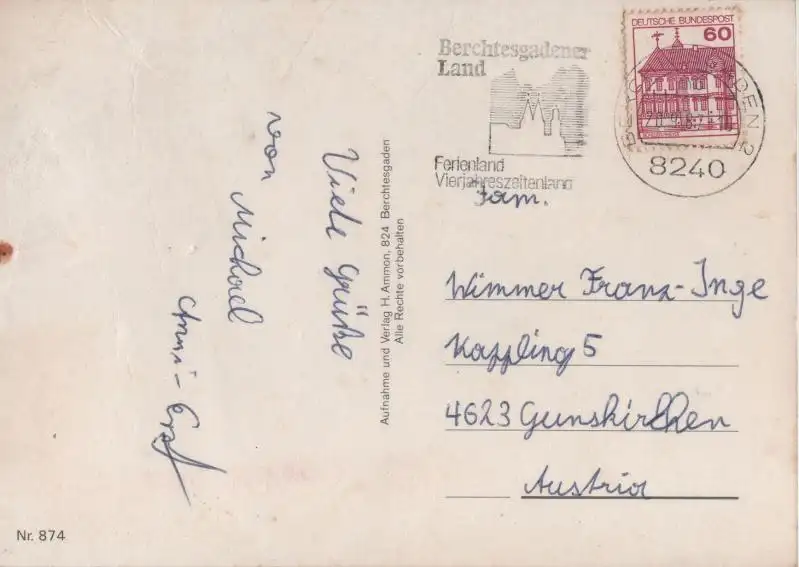 Viele Grüße
von Michael
Anni-Graf
Aufnahme und Verlag H. Ammon, 824 Berchtesgaden
Alle Rechte vorbehalten
Nr. 874
Berchtesgadener
Land
Ferienland
Vierjahreszeitenland
DEUTSCHE BUNDESPOST
60
8240
Fam.
Wimmer Franz-Inge
Kappling 5
4623 Gunskirchen
Austria